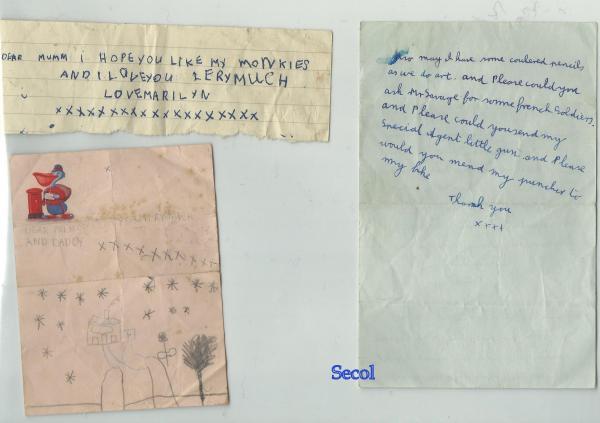 DEAR MUMM i HOPE YOU LIKE MY MONKIES
AND I LOVE YOU VERY MUCH
LOVE MARILYN
xxxxxxxxxxxxxxxxx
DEAR MUMMY
AND DADDY
xxxxxxxxxx
may I have some coulered pencils
as we do art. and Please could you
ask Mr Savage for some french Soldiers.
and Please could you send my
Special Agent little gun. and Please
would you mend my puncher to
my bike
Thank you
xxxx
Secol